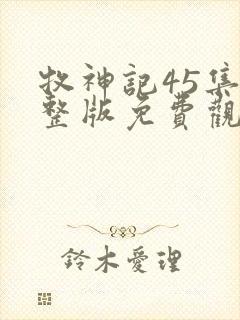 牧神記45集
整版免費觀
鈴木愛理